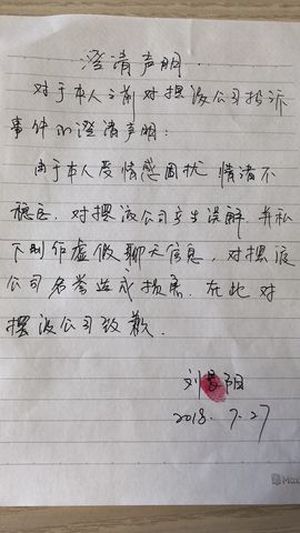 澄清声明
对于本人之前对摆渡公司投诉
事件的澄清声明:
由于本人受情感困扰 情绪不
稳定. 对摆渡公司产生误解. 并私
下制作虚假聊天信息, 对摆渡
公司名誉造成损害. 在此对
摆渡公司致歉.
刘 阳
2018. 7.27